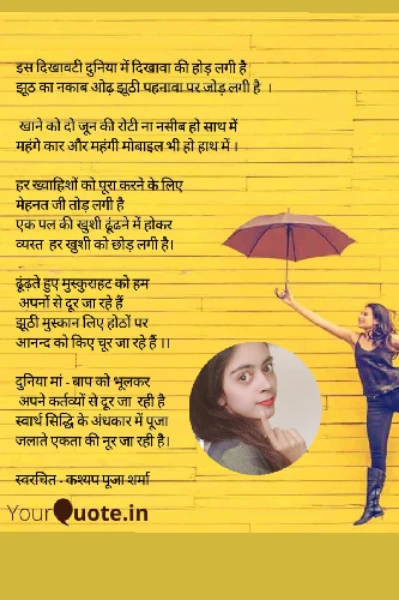 इस दिखावटी दुनिया में दिखावा की होड़ लगी है
झूठ का नकाब ओढ़ झूठी पहनावा पर जोड़ लगी है ।
खाने को दो जून की रोटी ना नसीब हो साथ में
महंगे कार और महंगी मोबाइल भी हो हाथ में ।
हर ख्वाहिशों को पूरा करने के लिए
मेहनत जी तोड़ लगी है
एक पल की खुशी ढूंढने में होकर
व्यस्त हर खुशी को छोड़ लगी है।
ढूंढ़ते हुए मुस्कुराहट को हम
अपनों से दूर जा रहे हैं
झूठी मुस्कान लिए होठों पर
आनन्द को किए चूर जा रहे हैं ।।
दुनिया मां - बाप को भूलकर
अपने कर्तव्यों से दूर जा रही है
स्वार्थ सिद्धि के अंधकार में पूजा
जलाते एकता की नूर जा रही है।
स्वरचित - कश्यप पूजा शर्मा
YourQuote.in